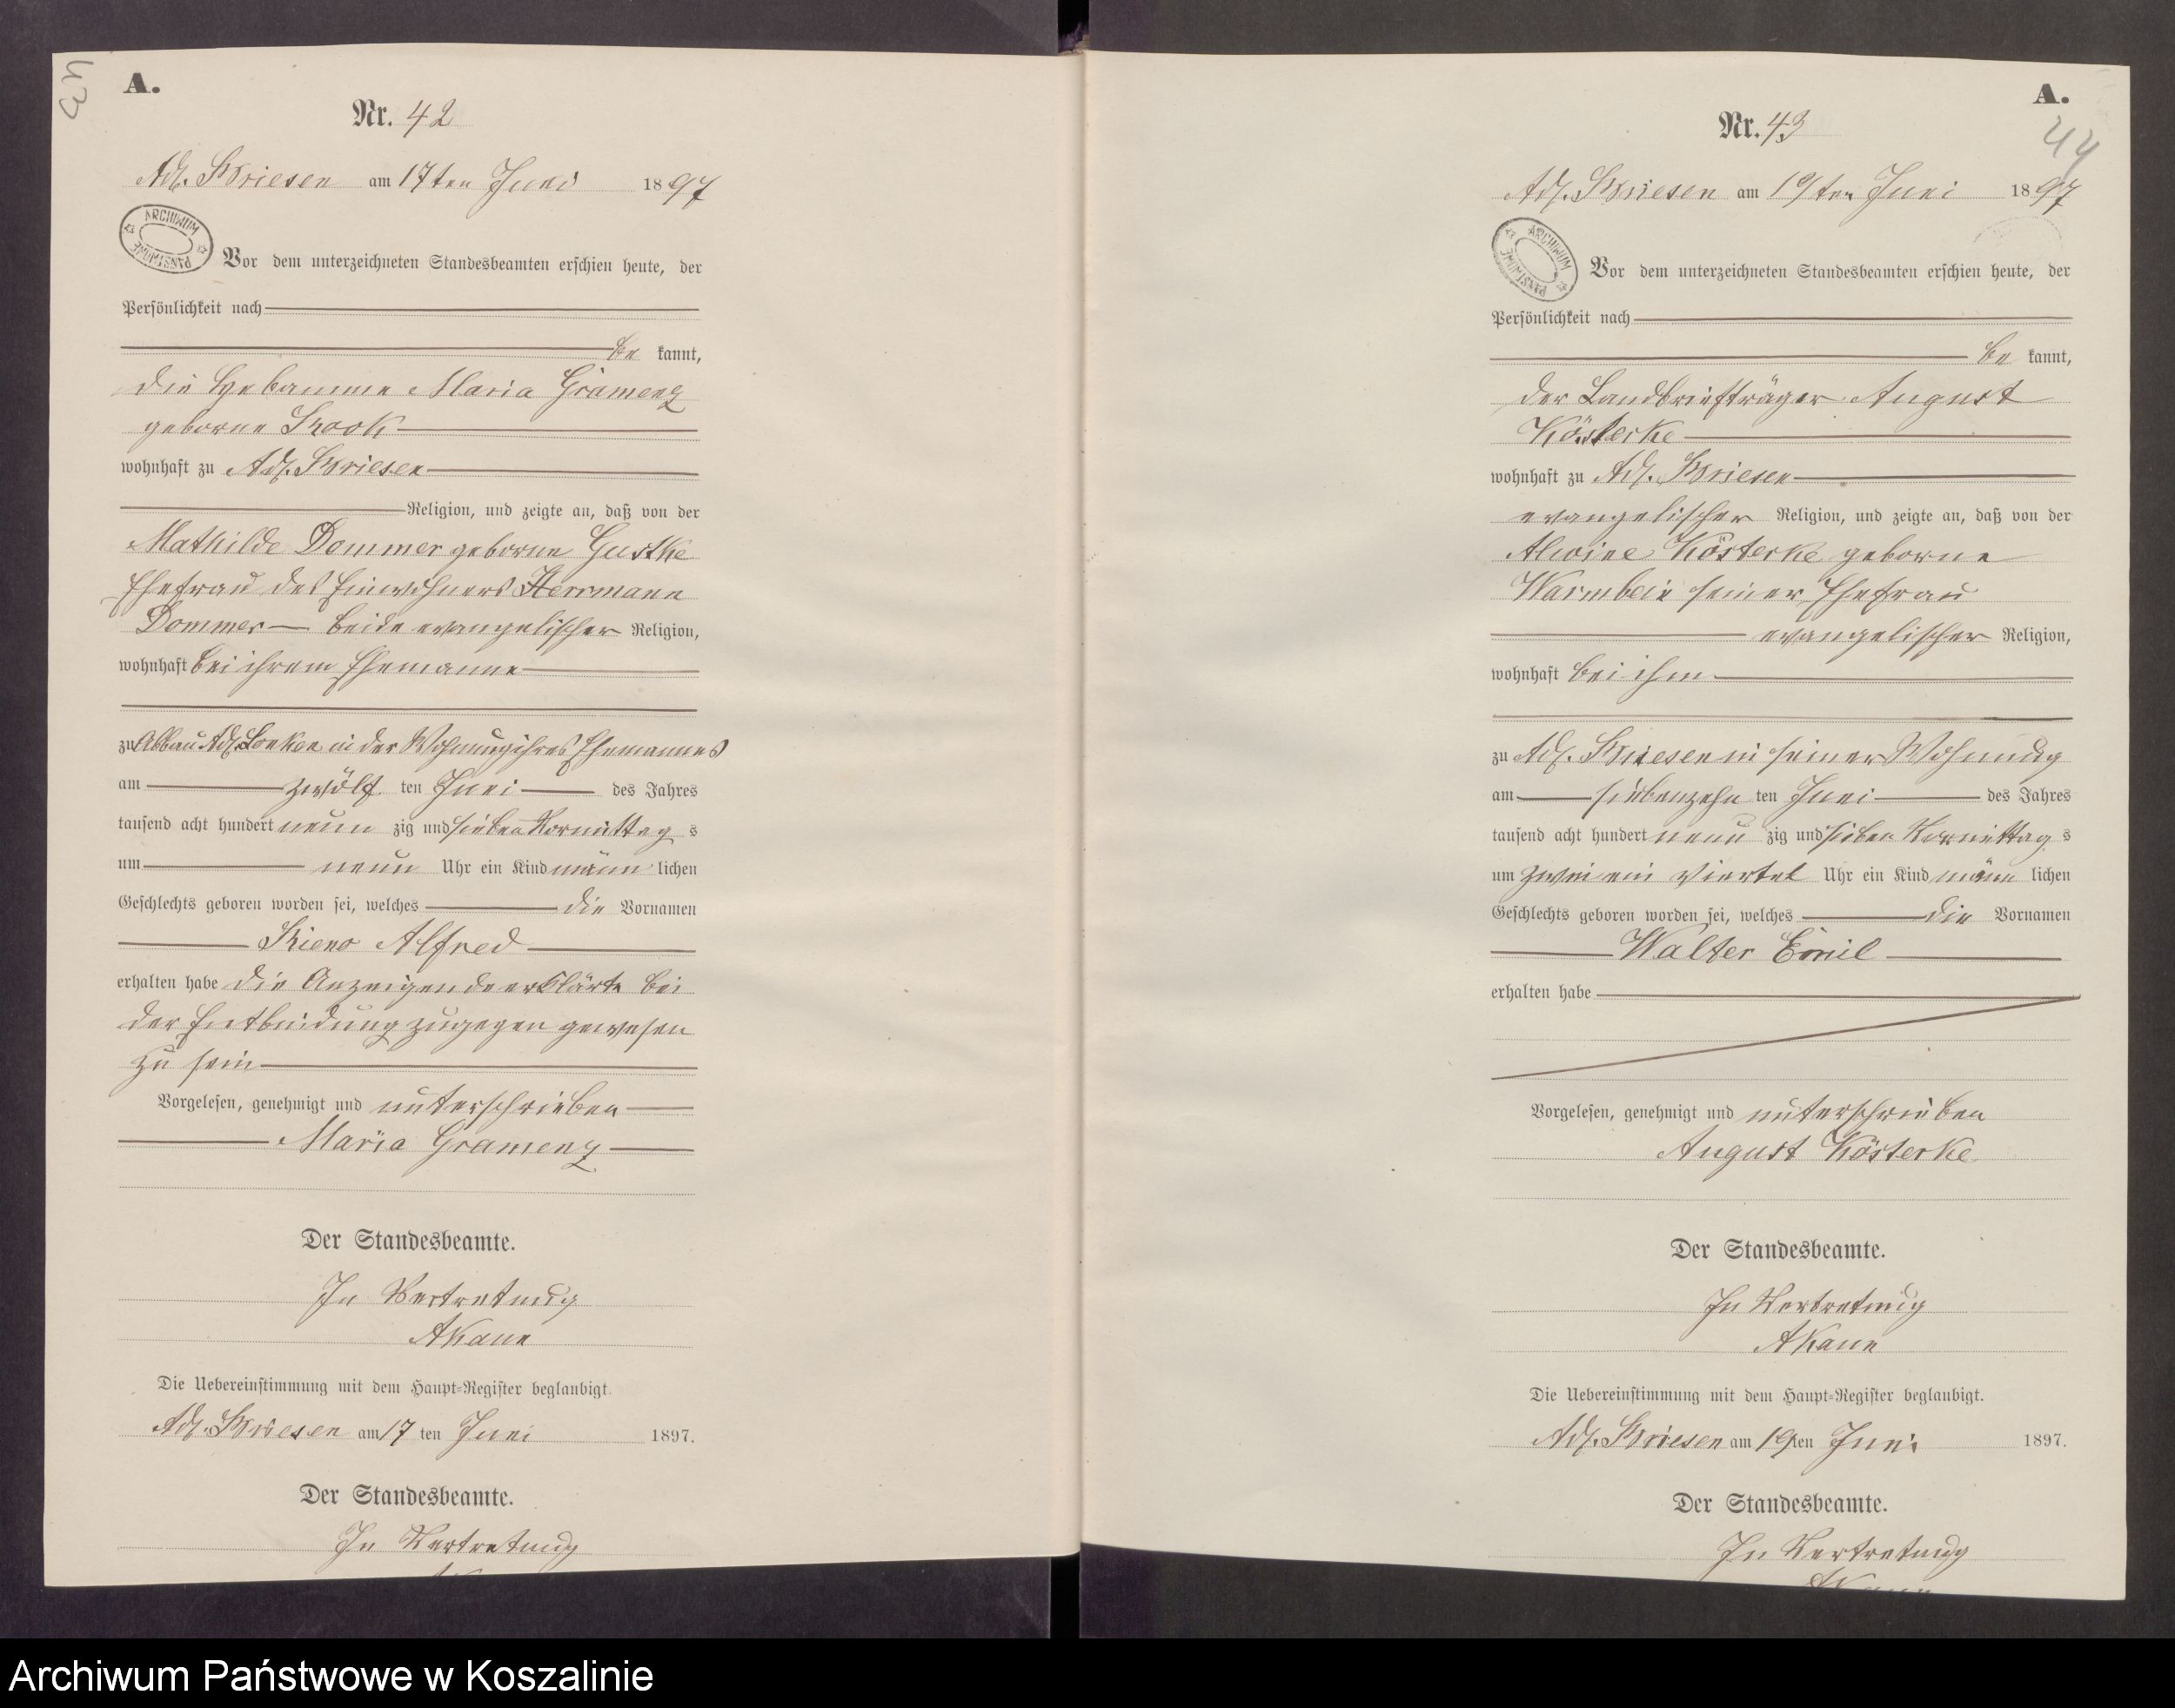 43
A.
Nr. 42
Adl. Briesen am 17ten Juni 1897
ARCHIWUM PAŃSTWOWE
Vor dem unterzeichneten Standesbeamten erschien heute, der
Persönlichkeit nach
be kannt,
die Hebamme Maria Gramenz
geborne
wohnhaft zu Adl. Briesen
Religion, und zeigte an, daß von der
Mathilde Dommer geborne Gustke
Ehefrau des Einwohners Herrmann
Dommer beide evangelischer Religion,
wohnhaft bei ihrem Ehemanne
zu Abbau Adl. in der Wohnung ihres Ehemannes
am zwölf ten Juni des Jahres
tausend acht hundert neun zig und sieben Vormittag s
um neun Uhr ein Kind männ lichen
Geschlechts geboren worden sei, welches die Vornamen
Alfred
erhalten habe die Anzeigende erklärte bei
der Entbindung zugegen gewesen
zu sein
Vorgelesen, genehmigt und unterschrieben
Maria Gramenz
Der Standesbeamte.
In Vertretung
AKann
Die Uebereinstimmung mit dem Haupt=Register beglaubigt.
Adl. Briesen am 17 ten Juni 1897.
Der Standesbeamte.
In Vertretung
A.
44
Nr. 43
Adl. Briesen am 19ten Juni 1897
ARCHIWUM PAŃSTWOWE
Vor dem unterzeichneten Standesbeamten erschien heute, der
Persönlichkeit nach
be kannt,
der Landbriefträger August
Kösterke
wohnhaft zu Adl. Briesen
evangelischer Religion, und zeigte an, daß von der
Alwine Kösterke geborne
Warmbein seiner Ehefrau
evangelischer Religion,
wohnhaft bei ihm
zu Adl. Briesen in seiner Wohnung
am siebenzehn ten Juni des Jahres
tausend acht hundert neun zig und sieben Vormittag s
um zwei ein viertel Uhr ein Kind männ lichen
Geschlechts geboren worden sei, welches die Vornamen
Walter Emil
erhalten habe
Vorgelesen, genehmigt und unterschrieben
August Kösterke
Der Standesbeamte.
In Vertretung
AKann
Die Uebereinstimmung mit dem Haupt=Register beglaubigt.
Adl. Briesen am 19ten Juni 1897.
Der Standesbeamte.
In Vertretung
AKann
Archiwum Państwowe w Koszalinie